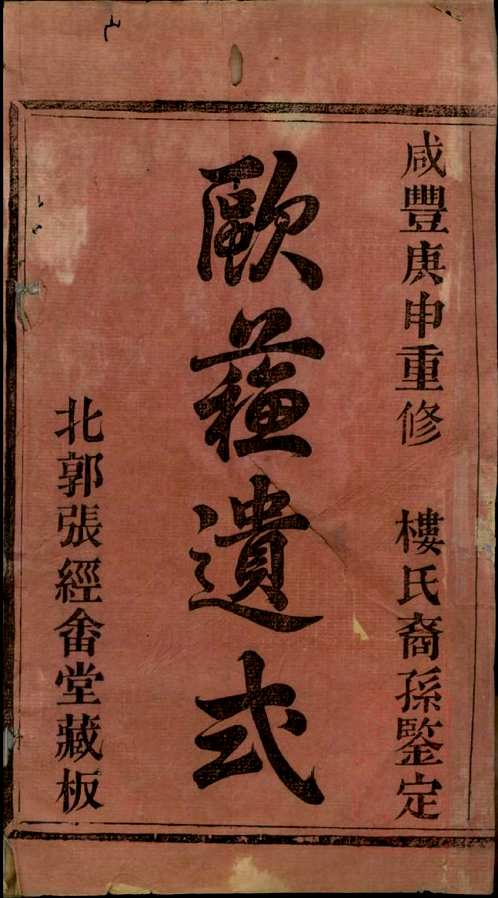 咸豐庚申重修　樓氏裔孫鑒定
歐蘓遺式
北郭張經畬堂藏板